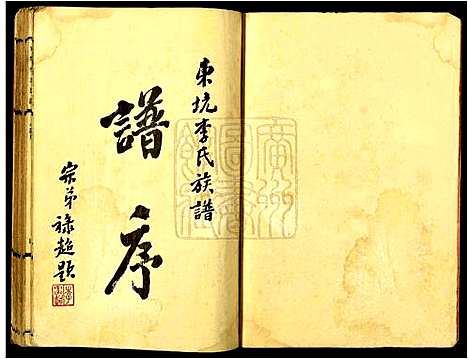 東坑李氏族譜
譜序
宗弟祿超題